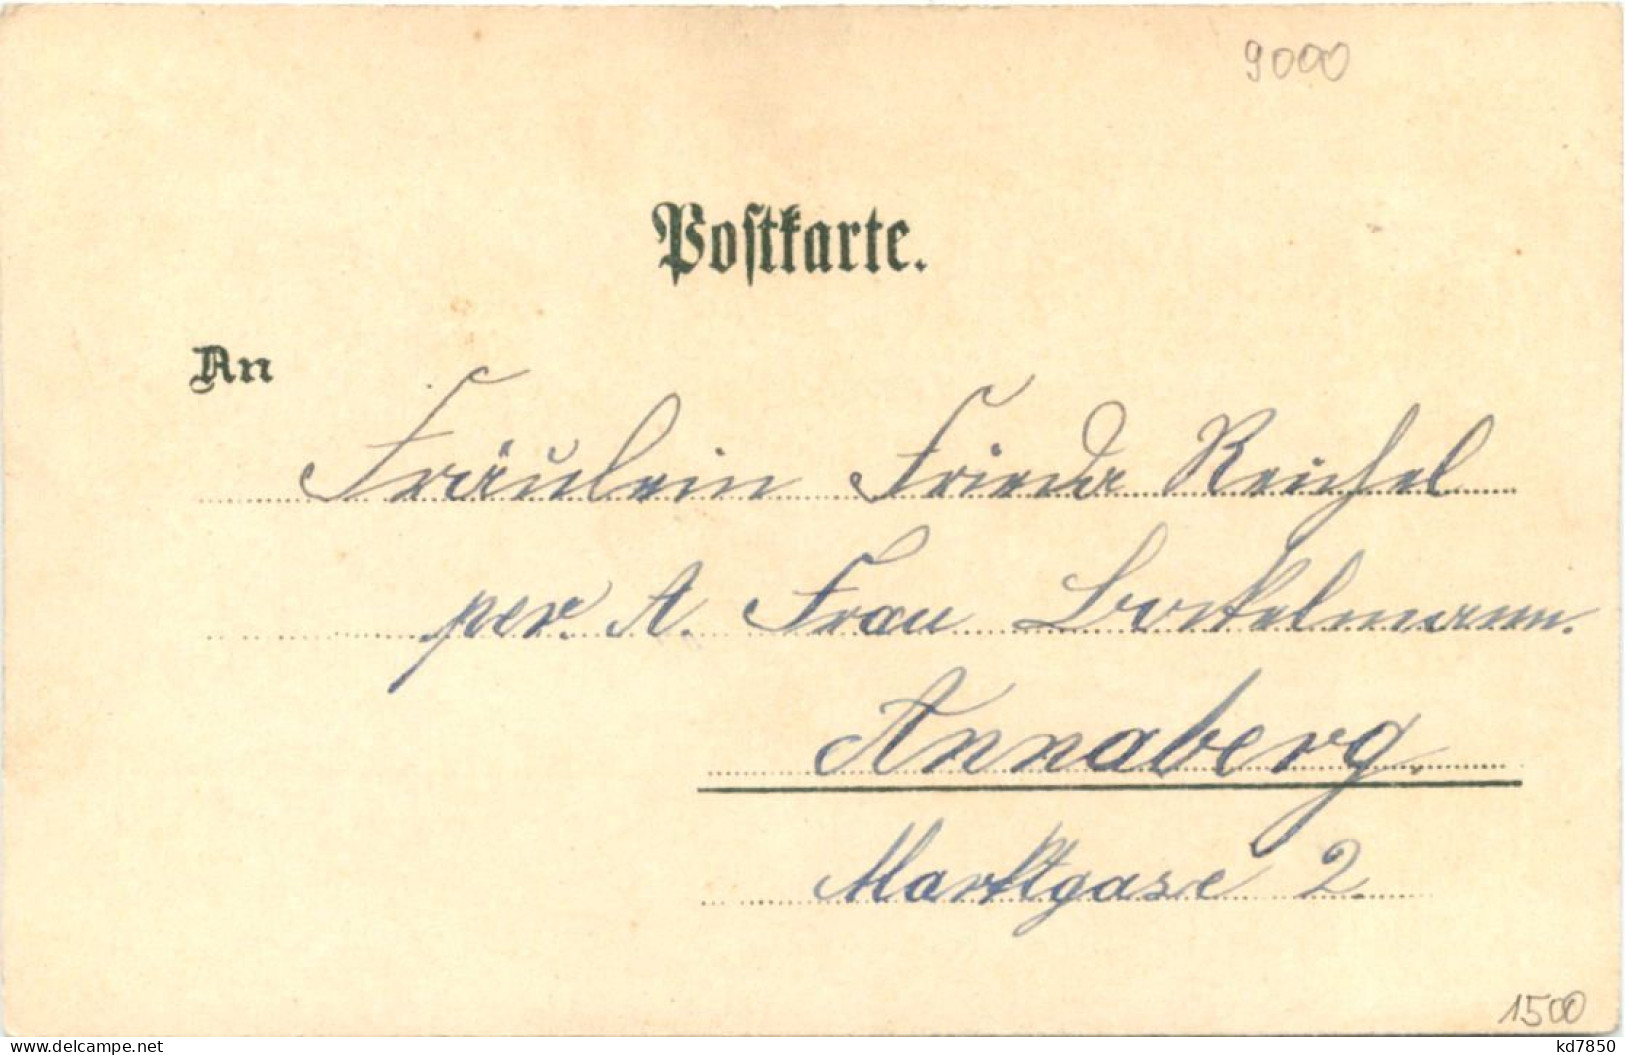 9000
Postkarte.
An
Fräulein Frieda Reichel
per. A. Frau Bockelmann.
Annaberg.
Marktgasse 2.
1500
www.delcampe.net
kd7850